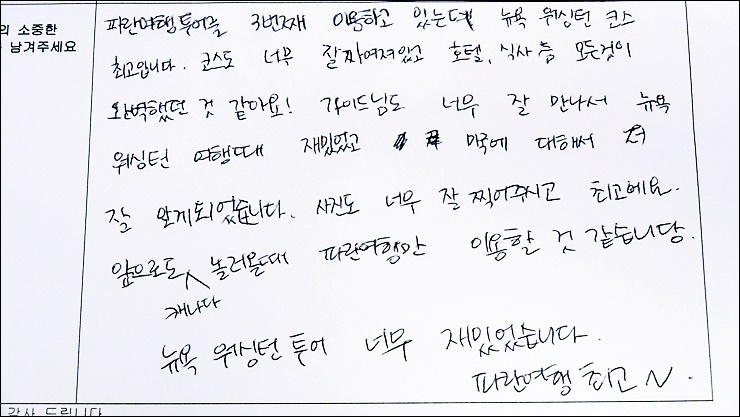 의 소중한
남겨주세요
파란여행 투어를 3번째 이용하고 있는데 뉴욕 워싱턴 코스
최고입니다. 코스도 너무 잘 짜여져있었고 호텔, 식사 등 모든것이
완벽했던 것 같아요! 가이드님도 너무 잘 만나서 뉴욕
워싱턴 여행때 재밌었고 미국에 대해서 더
잘 알게되었습니다. 사진도 너무 잘 찍어주시고 최고예요.
앞으로도 놀러올때 파란여행만 이용할 것 같습니당.
캐나다
뉴욕 워싱턴 투어 너무 재밌었습니다.
파란여행 최고~.
감사 드립니다